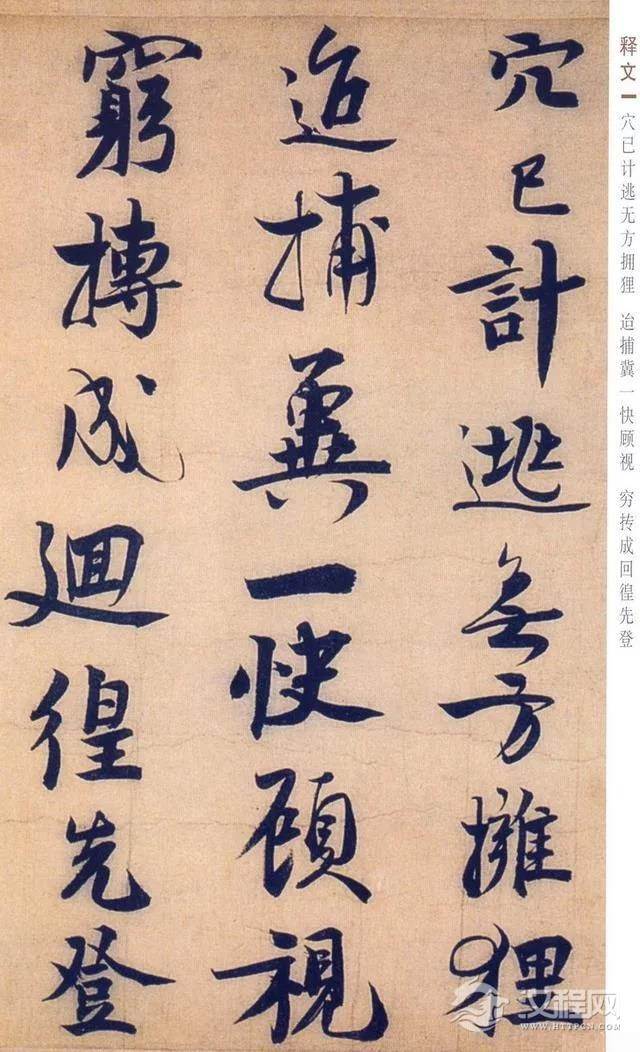 穴已計逃無方擁狸
迨捕冀一快顧視
窮摶成迴徨先登
释文
穴已计逃无方拥狸 迨捕冀一快顾视 穷抟成回徨先登
汉程网
WWW.HTTPCN.COM